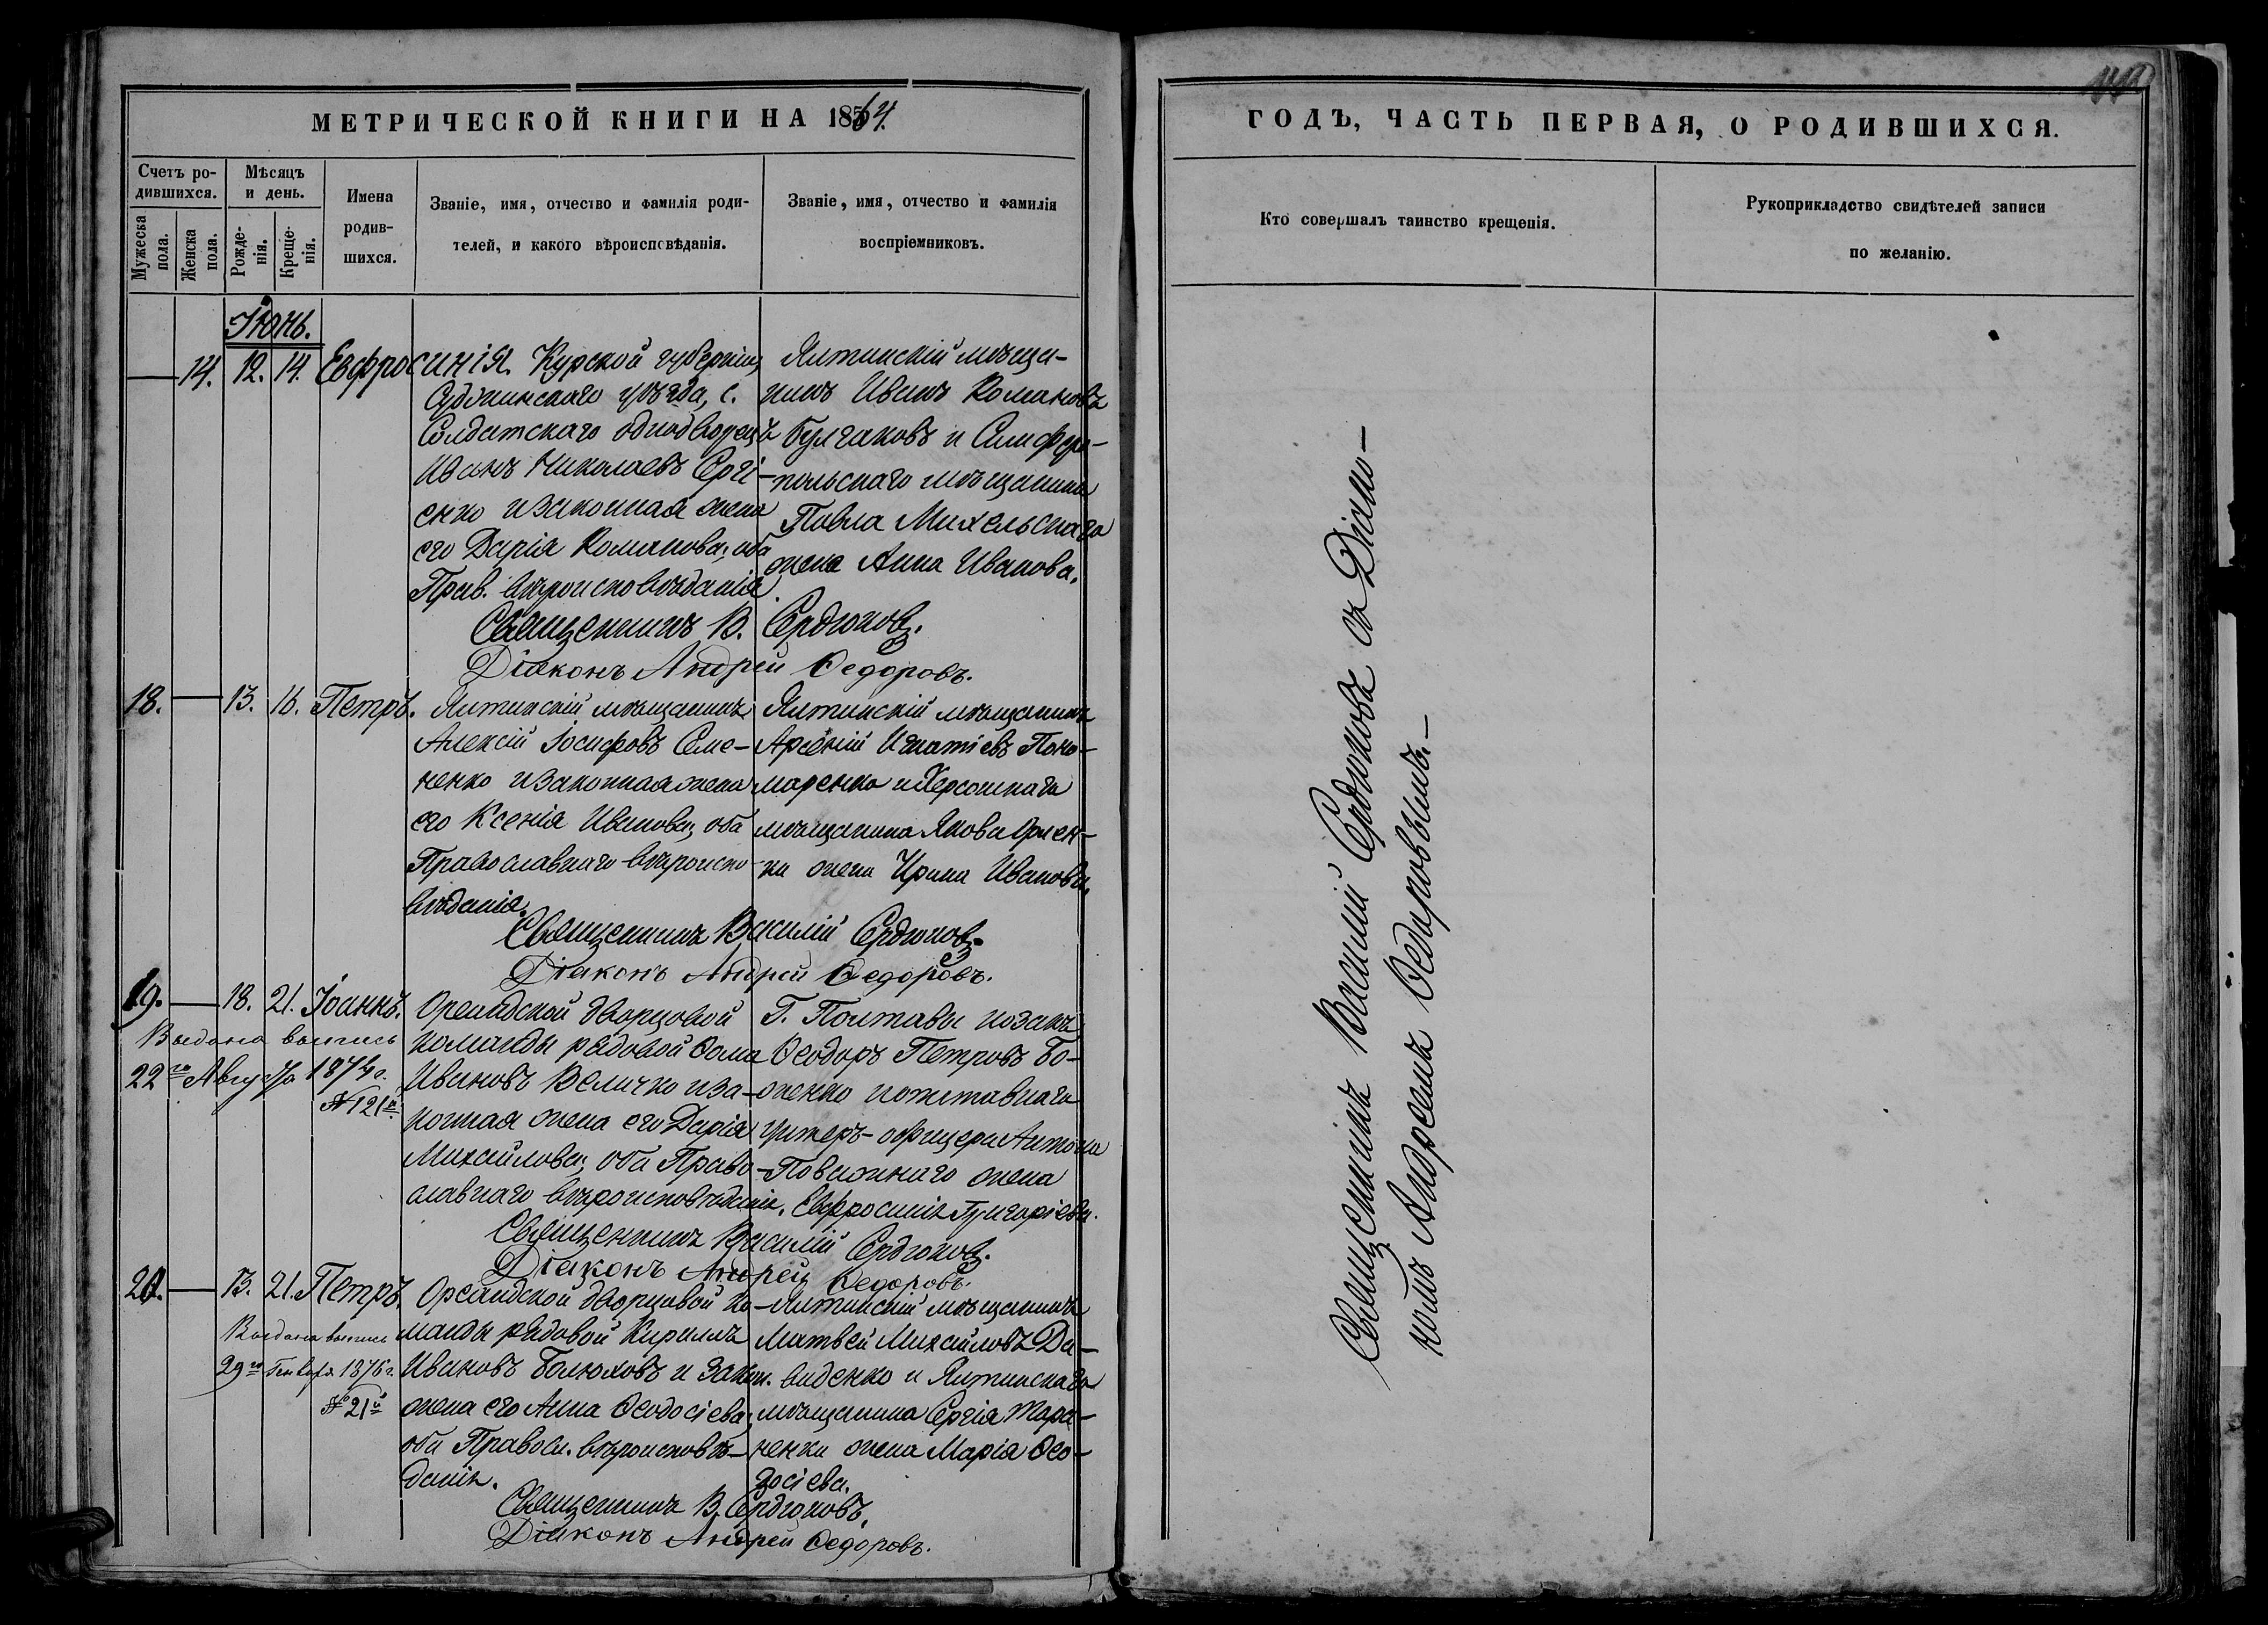 МЕТРИЧЕСКОЙ КНИГИ НА 1864.
Счетъ родившихся.
Мужеска пола.
Женска пола.
Мѣсяцъ и день.
Рожденія.
Крещенія.
Имена родившихся.
Званіе, имя, отчество и фамилія родителей, и какого вѣроисповѣданія.
Званіе, имя, отчество и фамилія воспріемниковъ.
Іюнь.
— 14. 12. 14. Евфросинія.
Курской губерніи,
Суджинскаго уѣзда, с.
Солдатскаго однодворецъ
Иванъ Николаевъ Сергі-
енко и законная жена
его Дарія Романова; оба
Прав. вѣроисповѣданія.
Ялтинскій мѣща-
нинъ Иванъ Романовъ
Булгаковъ и Симферо-
польскаго мѣщанина
Павла Михельскаго
жена Анна Иванова.
Священникъ В. Сердюковъ.
Діаконъ Андрей Ѳедоровъ.
18. — 13. 16. Петръ.
Ялтинскій мѣщанинъ
Алексій Іосифовъ Семе-
ненко и законная жена
его Ксенія Иванова; оба
Православнаго вѣроиспо-
вѣданія.
Ялтинскій мѣщанинъ
Арсеній Игнатіевъ Поно-
маренко и Херсонскаго
мѣщанина Якова
жена Ирина Иванова.
Священникъ Василій Сердюковъ.
Діаконъ Андрей Ѳедоровъ.
19. — 18. 21. Іоаннъ.
Выдана выпись
22го Августа 1874 г.
№ 121й
Ореандской дворцовой
команды рядовой Ѳома
Ивановъ Величко и за-
конная жена его Дарія
Михайлова; оба Право-
славнаго вѣроисповѣданія.
Г. Полтавы козакъ
Ѳеодоръ Петровъ Бо-
женко и отставнаго
унтеръ-офицера Антона
Поважнаго жена
Евфросинія Григоріева.
Священникъ Василій Сердюковъ.
Діаконъ Андрей Ѳедоровъ.
20. — 13. 21. Петръ.
Выдана выпись
29го Генваря 1876 г.
№ 21й
Ореандской дворцовой ко-
манды рядовой Кириллъ
Ивановъ Болюховъ и закон.
жена его Анна Ѳеодосіева;
оба Правосл. вѣроисповѣ-
данія.
Ялтинскій мѣщанинъ
Матвей Михайловъ Да-
виденко и Ялтинскаго
мѣщанина Сергія Тара-
ненки жена Марія Ѳео-
досіева.
Священникъ В. Сердюковъ.
Діаконъ Андрей Ѳедоровъ.
ГОДЪ, ЧАСТЬ ПЕРВАЯ, О РОДИВШИХСЯ.
Кто совершалъ таинство крещенія.
Рукоприкладство свидѣтелей записи
по желанію.
Священникъ Василій Сердюковъ съ Діако-
номъ Андреемъ Ѳедоровымъ.—